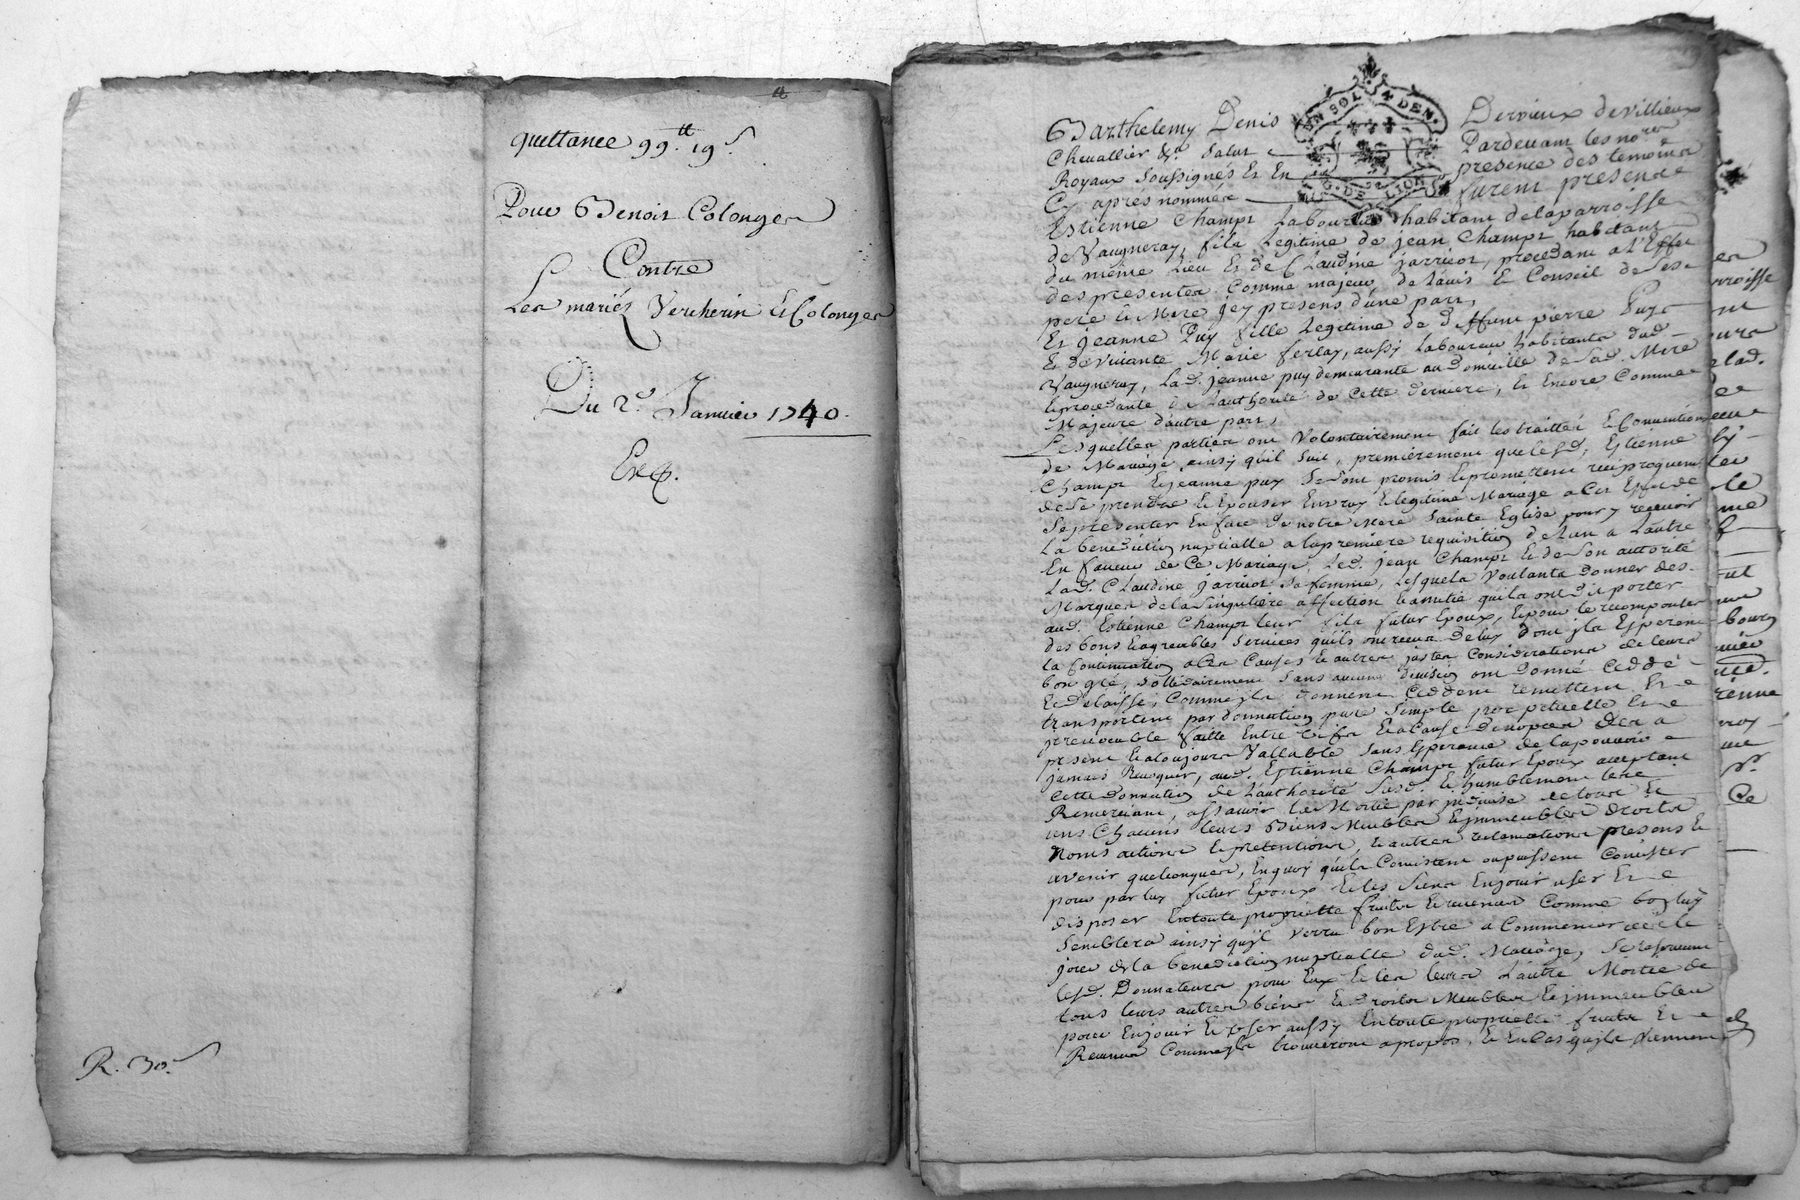 quittance 99 ₶ 19 s
Pour Benoit Colonges
Contre
Les mariés Vercherin et Colonges
Du 2e. Janvier 1740.
Exp.
R. 30 s
UN SOL 4 DEN.
G. DE LION
Barthelemy Denis Dervieux de villieux
Chevallier &a. Salut Pardevant les nores
Royaux Soussignés Et En presence des temoins
Cy après nommés furent presents
Estienne Champt Laboureur habitant de la parroisse
de Vaugneray, fils Legitime de jean Champt habitant
du même Lieu Et de Claudine jarricot, procedant a l'Effet
des presentes Comme majeur, de l'avis Et Conseil de Ses
pere Et Mere jcy presens d'une part,
Et jeanne Puy fille Legitime de deffunt pierre Puy
Et de vivante Marie ferlay, aussy Laboureur habitants dud.
Vaugneray, Lad. jeanne puy demeurante au domicille de Sad. Mere
Et procedante de L'authorité de Cette derniere, Et Encore Comme
Majeure d'autre part,
Lesquelles parties ont Volontairement fait les traittés Et Conventions
de Mariage ainsy qu'il Suit, premierement que lesd. Estienne
Champt Et jeanne puy Se Sont promis Et promettent reciproquemt.
de Se prendre Et Epouser En vray Et legitime Mariage a Cet Effet de
Se presenter En face de notre Mere Sainte Eglise pour y recevoir
La benediction nuptialle a la premiere requisition de L'un a L'autre
En faveur de Ce Mariage, Led. jean Champt Et de Son autorité
Lad. Claudine jarricot Sa femme, Lesquels Voulants donner des
Marques de la Singuliere affection Et amitié qu'ils ont Et portent
aud. Estienne Champt leur fils futur Epoux, Et pour le recompenser
des bons Et agreables Services qu'ils ont receus de luy dont jls Esperent
la Continuation a Ces Causes Et autres justes Considerations de leurs
bon gré, Sollidairement Sans aucune division ont Donné Ceddé
Et delaissé, Comme jls donnent Ceddent remettent Et
transportent par donnation pure Simple perpetuelle Et
jrrevocable faitte Entre vifs Et a Cause de nopces des a
present Et a toujours Vallable Sans Esperance de la pouvoir
jamais Revoquer, aud. Estienne Champt futur Epoux acceptant
Cette donnation de L'authorité Susd. Et humblement Les
Remerciant, assavoir La Moitié par jndivise de tous Et
uns Chacuns leurs Biens Meubles Et jmmeubles Droits
Noms actions Et pretentions, Et autres reclamations presens Et
avenir quelconques, En quoy qu'ils Consistent ou puissent Consister
pour par luy futur Epoux Et les Siens En jouir user Et
disposer En toute proprieté fruits Et revenus Comme bon luy
Semblera ainsy qu'jl verra bon Estre a Commencer dès le
jour de la benediction nuptialle dud. Mariage, Se reservant
lesd. Donnateurs pour Eux Et les leurs L'autre Moitié de
tous leurs autres biens Et droits Meubles Et jmmeubles
pour En jouir Et user aussy En toute proprieté fruits Et
Revenus Comme jls trouveront apropos, Et En Cas qu'jls Viennent